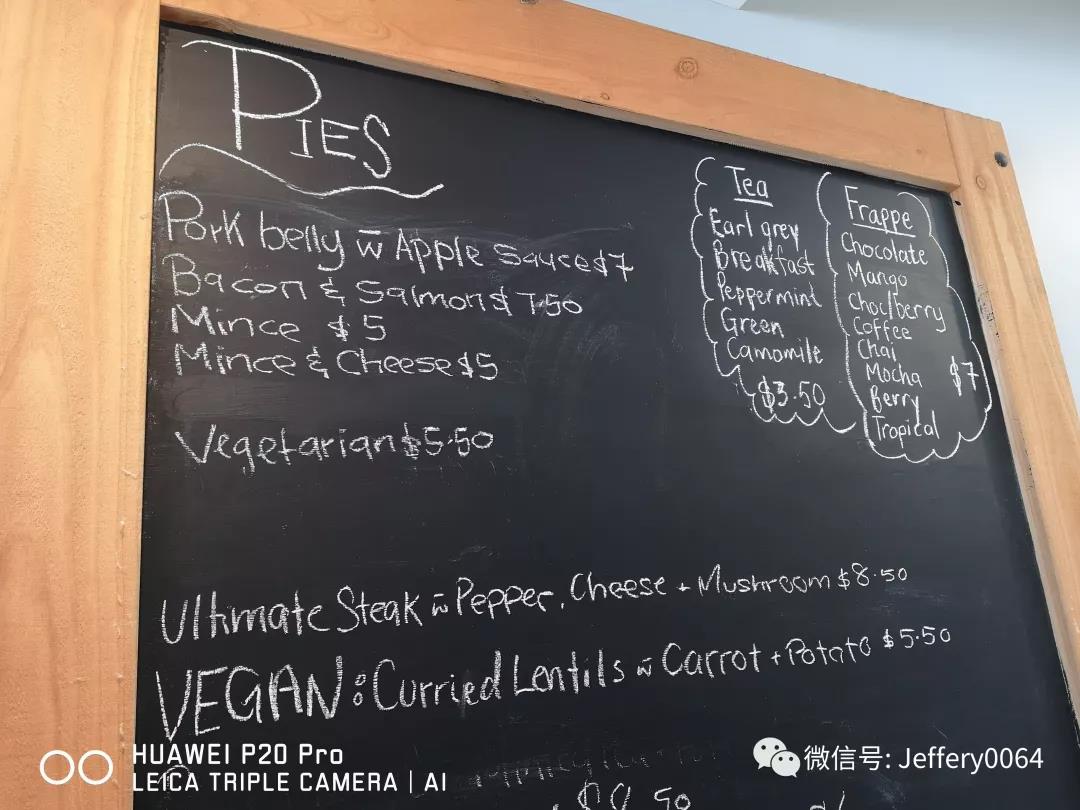 PIES
Pork belly w̄ Apple Sauce $7
Bacon & Salmon $7.50
Mince $5
Mince & Cheese $5
Vegetarian $5.50
Tea
Earl grey
Breakfast
Peppermint
Green
Camomile
$3.50
Frappe
Chocolate
Mango
Choc/berry
Coffee
Chai
Mocha $7
Berry
Tropical
Ultimate Steak w̄ Pepper, Cheese + Mushroom $8.50
VEGAN: Curried Lentils w̄ Carrot + Potato $5.50
HUAWEI P20 Pro
LEICA TRIPLE CAMERA | AI
微信号: Jeffery0064